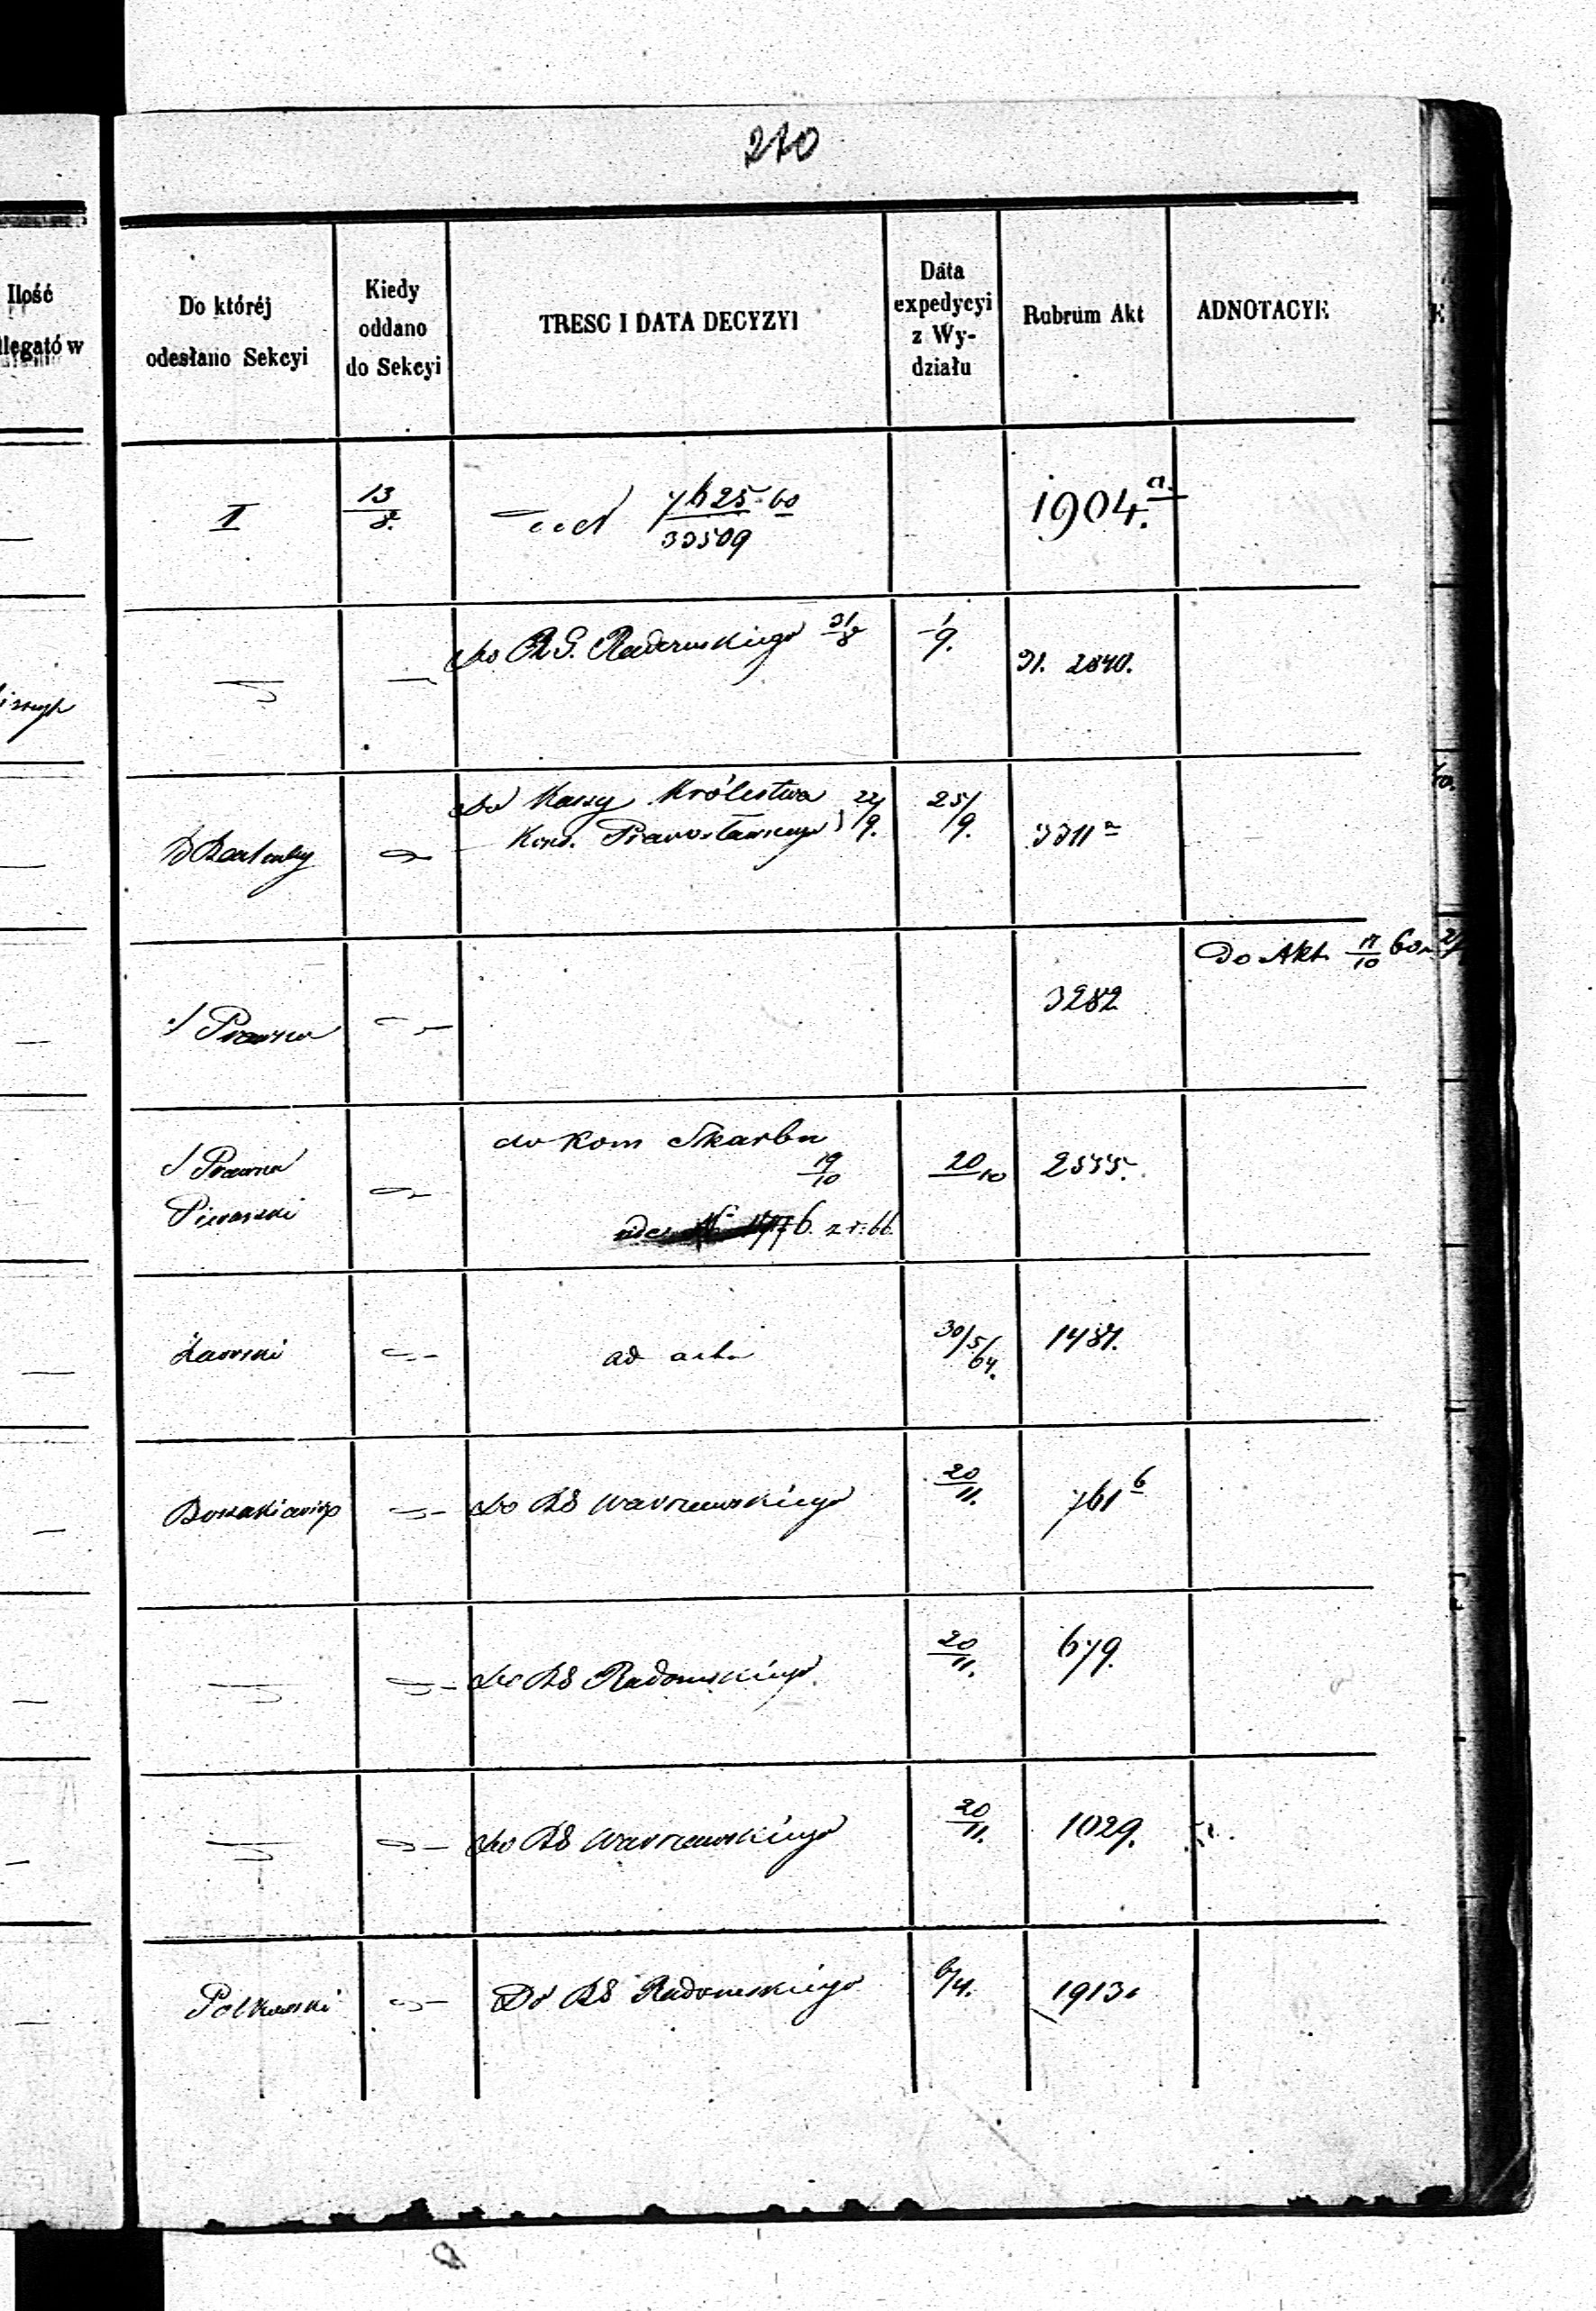 270
Ilość
llegatów
Do któréj
odesłano Sekcyi
Kiedy
oddano
do Sekcyi
TRESC I DATA DECYZYI
Data
expedycyi
z Wy-
działu
Rubrum Akt
ADNOTACYE
I
13/8.
ad 7625.60/33509
1904.a.
do R G. Radomskiego 31/8
1/9.
2840.
do Kassy Królestwa
Kons. Prawosławnego 22/9.
25/9.
3311 a
S Prawna
3282
Do Akt 17/10 60
S Prawna
Piwarski
do Kom Skarbu
19/10
20/10
2555.
6. z r. 66.
Żaorski
ad acta
30/5/64.
1487.
do RG Warszawskiego
20/11.
761 b
do RG Radomskiego
20/11.
679.
do RG Warszawskiego
20/11.
1029.
Polkowski
Do RG Radomskiego
6/4.
1913.